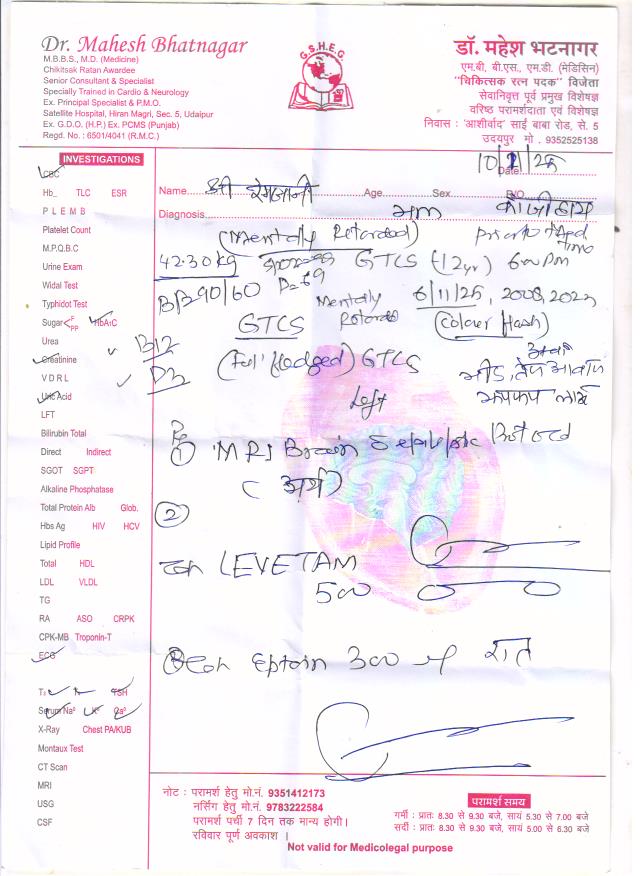 Dr. Mahesh Bhatnagar
M.B.B.S., M.D. (Medicine)
Chikitsak Ratan Awardee
Senior Consultant & Specialist
Specially Trained in Cardio & Neurology
Ex. Principal Specialist & P.M.O.
Satellite Hospital, Hiran Magri, Sec. 5, Udaipur
Ex. G.D.O. (H.P.) Ex. PCMS (Punjab)
Regd. No. : 6501/4041 (R.M.C.)
G.S.H.E.G.
डॉ. महेश भटनागर
एम.बी. बी.एस., एम.डी. (मेडिसिन)
"चिकित्सक रत्न पदक" विजेता
सेवानिवृत्त पूर्व प्रमुख विशेषज्ञ
वरिष्ठ परामर्शदाता एवं विशेषज्ञ
निवास : 'आशीर्वाद' साईं बाबा रोड, से. 5
उदयपुर मो . 9352525138
INVESTIGATIONS
CBC
Hb_ TLC ESR
P L E M B
Platelet Count
M.P.Q.B.C
Urine Exam
Widal Test
Typhidot Test
Sugar F PP HbA1C
Urea
Creatinine
V D R L
Uric Acid
LFT
Bilirubin Total
Direct Indirect
SGOT SGPT
Alkaline Phosphatase
Total Protein Alb Glob.
Hbs Ag HIV HCV
Lipid Profile
Total HDL
LDL VLDL
TG
RA ASO CRPK
CPK-MB Troponin-T
ECG
T3 TSH
Serum Na
X-Ray Chest PA/KUB
Montaux Test
CT Scan
MRI
USG
CSF
Date
Name Age Sex R/O
श्री
Diagnosis
(Mentally Retarded)
42.30 kg GTCS (12yr)
B/P 90/60 Mentally 6/11/25, 2008,
GTCS (Colour flash)
B12
D3 (Full fledged) GTCS
Left
① MRI Brain
②
LEVETAM
500
Eptoin 300 रात
नोट : परामर्श हेतु मो.नं. 9351412173
नर्सिंग हेतु मो.नं. 9783222584
परामर्श पर्ची 7 दिन तक मान्य होगी।
रविवार पूर्ण अवकाश ।
परामर्श समय
गर्मी : प्रातः 8.30 से 9.30 बजे, सायं 5.30 से 7.00 बजे
सर्दी : प्रातः 8.30 से 9.30 बजे, सायं 5.00 से 6.30 बजे
Not valid for Medicolegal purpose